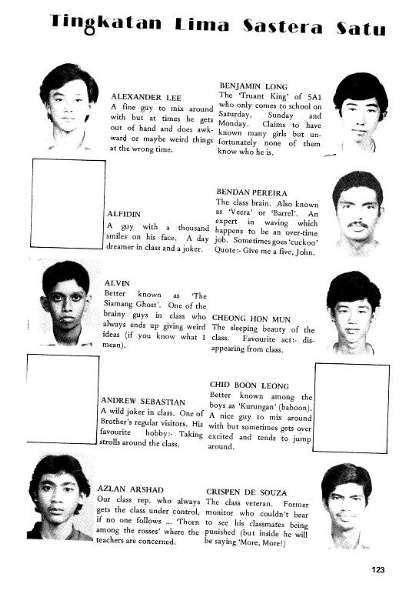 Tingkatan Lima Sastera Satu
ALEXANDER LEE
A fine guy to mix around
with but at times he gets
out of hand and does awk-
ward or maybe weird things
at the wrong time.
BENJAMIN LONG
The 'Truant King' of 5A1
who only comes to school on
Saturday, Sunday and
Monday. Claims to have
known many girls but un-
fortunately none of them
know who he is.
ALFIDIN
A guy with a thousand
smiles on his face. A day
dreamer in class and a joker.
BENDAN PEREIRA
The class brain. Also known
as 'Veera' or 'Barrel'. An
expert in waving which
happens to be an over-time
job. Sometimes goes 'cuckoo'
Quote:- Give me a five, John.
ALVIN
Better known as 'The
Siamang Ghost'. One of the
brainy guys in class who
always ends up giving weird
ideas (if you know what I
mean).
CHEONG HON MUN
The sleeping beauty of the
class. Favourite act:- dis-
appearing from class.
ANDREW SEBASTIAN
A wild joker in class. One of
Brother's regular visitors. His
favourite hobby:- Taking
strolls around the class.
CHID BOON LEONG
Better known among the
boys as 'Kurungan' (baboon).
A nice guy to mix around
with but sometimes gets over
excited and tends to jump
around.
AZLAN ARSHAD
Our class rep. who always
gets the class under control,
if no one follows ... 'Thorn
among the rosses' where the
teachers are concerned.
CRISPEN DE SOUZA
The class veteran. Former
monitor who couldn't bear
to see his classmates being
punished (but inside he will
be saying 'More, More!)
123